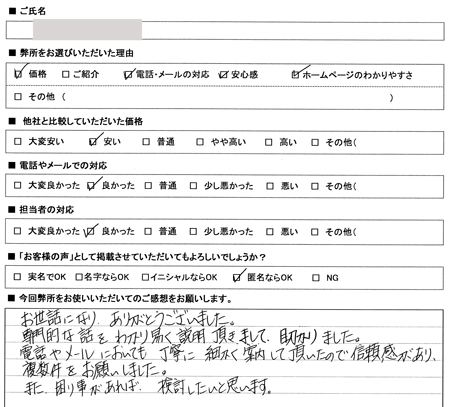 ■ ご氏名
■ 弊所をお選びいただいた理由
☑ 価格 □ご紹介 ☑電話・メールの対応 ☑安心感 ☑ホームページのわかりやすさ
□ その他 ( )
■ 他社と比較していただいた価格
□ 大変安い ☑ 安い □ 普通 □ やや高い □ 高い □ その他(
■ 電話やメールでの対応
□ 大変良かった ☑ 良かった □ 普通 □ 少し悪かった □ 悪い □ その他(
■ 担当者の対応
□ 大変良かった ☑ 良かった □ 普通 □ 少し悪かった □ 悪い □ その他(
■ 「お客様の声」として掲載させていただいてもよろしいでしょうか？
□ 実名でOK □名字ならOK □イニシャルならOK ☑ 匿名ならOK □ NG
■ 今回弊所をお使いいただいてのご感想をお願いします。
お世話になり、ありがとうございました。
専門的な話をわかり易く説明頂きまして、助かりました。
電話やメールにおいても丁寧に細かく案内して頂いたので信頼感があり、
複数件をお願いしました。
また、困り事があれば、検討したいと思います。